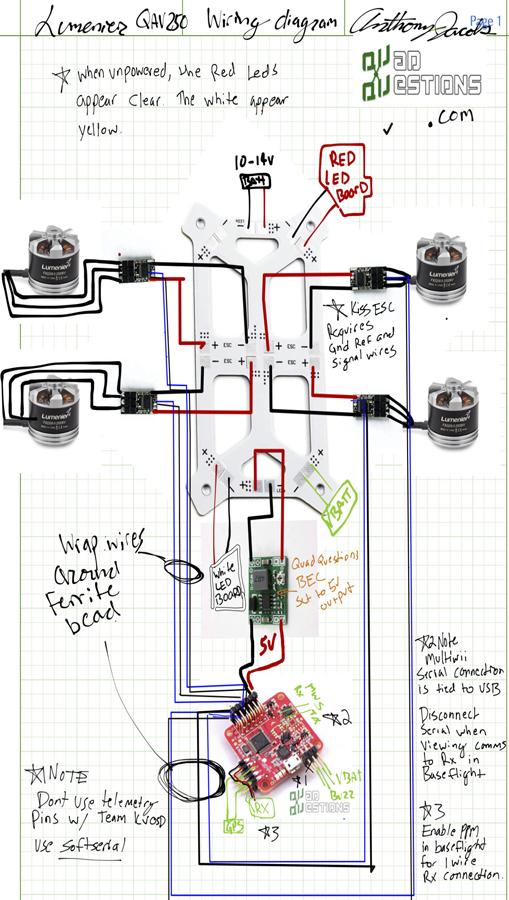 Lumenier QAV250 Wiring diagram Anthony Jacobs
Page 1
QUAD
QUESTIONS
.com
When unpowered, the Red Leds
appear Clear. The white appear
yellow.
10-14V
BATT
RED
LED
BOARD
Lumenier
Lumenier
Kiss ESC
Requires
Gnd Ref and
signal wires
+ ESC -
+ ESC -
+ ESC -
+ ESC -
Lumenier
Lumenier
VBATT
Wrap wires
around
Ferrite
bead
White
LED
BOARD
QuadQuestions
BEC
Set to 5V
output
5V
2 Note
Multiwii
Serial connection
is tied to USB
Disconnect
Serial when
Viewing comms
to Rx in
Baseflight
2
1
VBAT
Buzz
QUAD
QUESTIONS
GPS
RX
3
1 NOTE
Dont Use telemetry
Pins w/ Team KVOSD
Use Softserial
3
Enable PPM
in baseflight
for 1 wire
Rx connection.